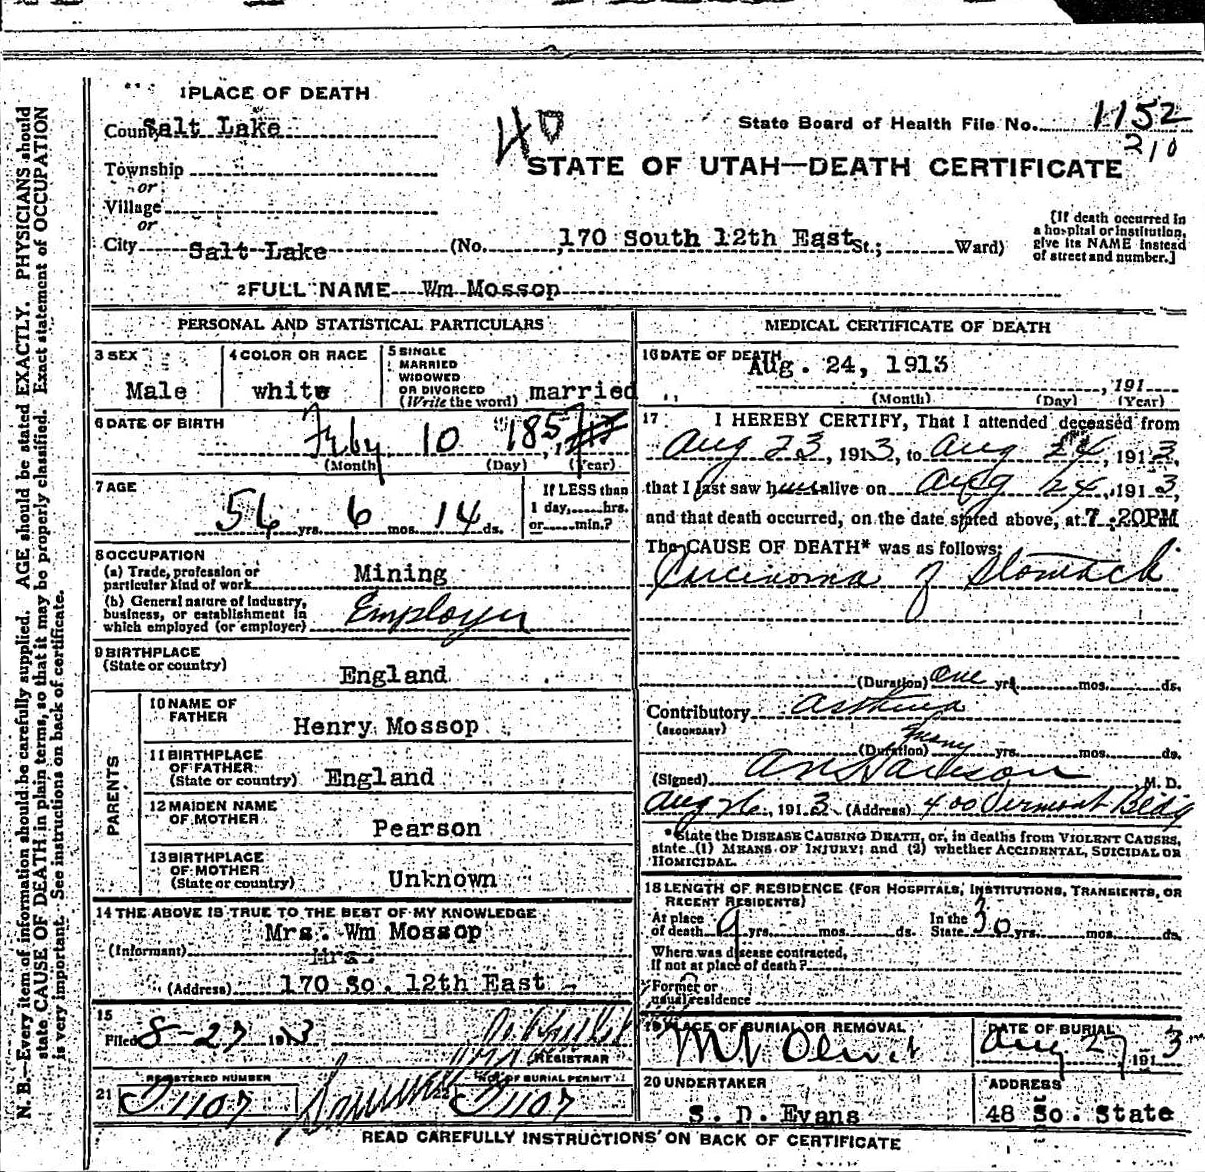 1 PLACE OF DEATH
County Salt Lake
40
State Board of Health File No. 1152
210
STATE OF UTAH—DEATH CERTIFICATE
Township
or
Village
or
City Salt Lake (No. 170 South 12th East St.; Ward)
[If death occurred in a hospital or institution, give its NAME instead of street and number.]
2 FULL NAME Wm Mossop
PERSONAL AND STATISTICAL PARTICULARS
3 SEX
Male
4 COLOR OR RACE
white
5 SINGLE
MARRIED
WIDOWED
OR DIVORCED
(Write the word) married
6 DATE OF BIRTH
Feby 10 1857
(Month) (Day) (Year)
7 AGE
56 yrs. 6 mos. 14 ds.
If LESS than
1 day, hrs.
or min.?
8 OCCUPATION
(a) Trade, profession or
particular kind of work Mining
(b) General nature of industry,
business, or establishment in
which employed (or employer) Employer
9 BIRTHPLACE
(State or country) England
PARENTS
10 NAME OF
FATHER Henry Mossop
11 BIRTHPLACE
OF FATHER
(State or country) England
12 MAIDEN NAME
OF MOTHER Pearson
13 BIRTHPLACE
OF MOTHER
(State or country) Unknown
14 THE ABOVE IS TRUE TO THE BEST OF MY KNOWLEDGE
(Informant) Mrs. Wm Mossop
Mrs.
(Address) 170 So. 12th East
15
Filed 8-27 1913
REGISTRAR
21 REGISTERED NUMBER
1107
22 NO. OF BURIAL PERMIT
1107
MEDICAL CERTIFICATE OF DEATH
16 DATE OF DEATH
Aug. 24, 1913
, 191
(Month) (Day) (Year)
17 I HEREBY CERTIFY, That I attended deceased from
Aug 23, 1913, to Aug 24, 1913,
that I last saw him alive on Aug 24, 1913,
and that death occurred, on the date stated above, at 7:20PM
The CAUSE OF DEATH* was as follows:
Carcinoma of Stomach
(Duration) one yrs. mos. ds.
Contributory Asthma
(SECONDARY)
(Duration) many yrs. mos. ds.
(Signed) M. D.
Aug 26, 1913 (Address) 400 Vermont Bldg
*State the DISEASE CAUSING DEATH, or, in deaths from VIOLENT CAUSES,
state (1) MEANS OF INJURY; and (2) whether ACCIDENTAL, SUICIDAL OR
HOMICIDAL.
18 LENGTH OF RESIDENCE (FOR HOSPITALS, INSTITUTIONS, TRANSIENTS, OR
RECENT RESIDENTS)
At place
of death 9 yrs. mos. ds.
In the
State 30 yrs. mos. ds.
Where was disease contracted,
if not at place of death?
Former or
usual residence
19 PLACE OF BURIAL OR REMOVAL
Mt Olivet
DATE OF BURIAL
Aug 27 1913
20 UNDERTAKER
S. D. Evans
ADDRESS
48 So. State
READ CAREFULLY INSTRUCTIONS ON BACK OF CERTIFICATE
N. B.—Every item of information should be carefully supplied. AGE should be stated EXACTLY. PHYSICIANS should
state CAUSE OF DEATH in plain terms, so that it may be properly classified. Exact statement of OCCUPATION
is very important. See instructions on back of certificate.